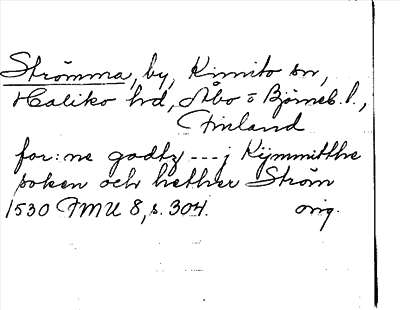 Strömma, by, Kimito sn,
Haliko hd, Åbo o Björneb. l.,
Finland
for: ne godtz --- j Kijmmitthe
soken och hether Ström
1530 FMU 8, s. 304. orig.